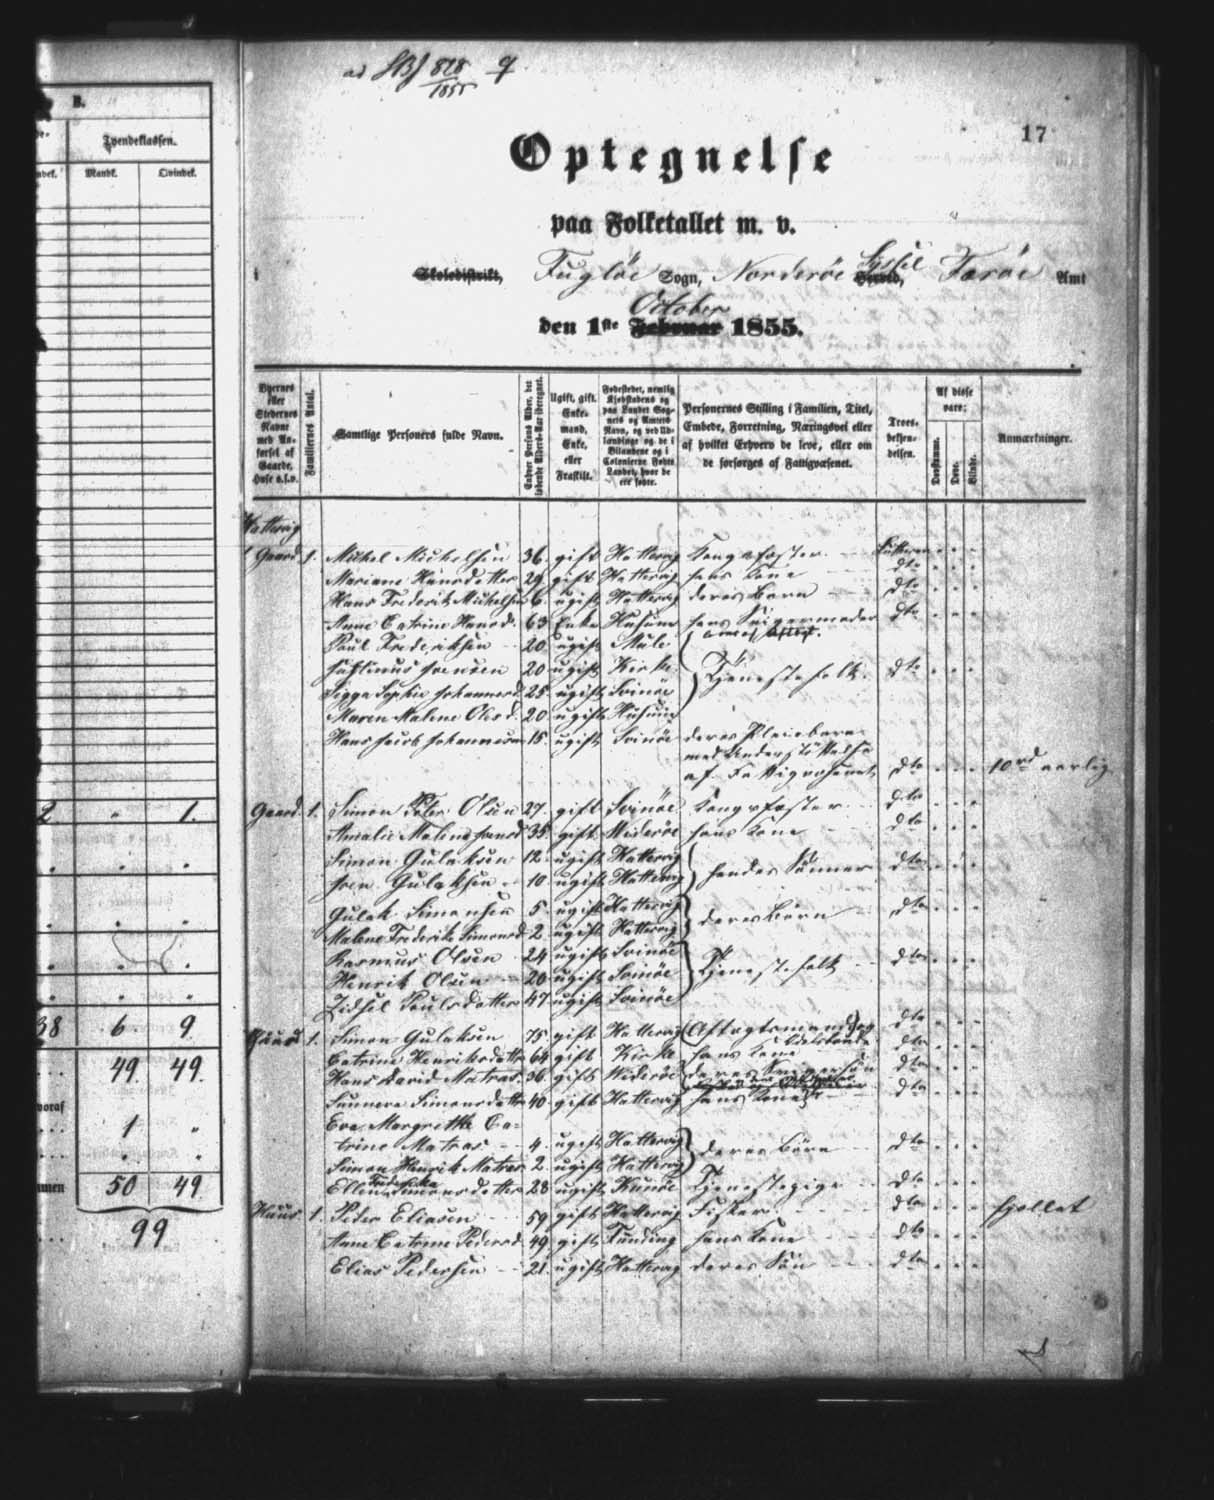 B.
Tyendeklassen.
Mandk. Qvindek.
2 " 1.
38 6. 9.
49. 49.
1 "
50 49
99
ad 828 / 1855
17
Optegnelse
paa Folketallet m. v.
Skoledistrikt, Fugløe Sogn, Norderøe Syssel Herred, Færøe Amt
October
den 1ste Februar 1855.
Byernes eller Stedernes Navne med Anførsel af Gaarde, Huse o.s.v.
Familiernes Antal.
Samtlige Personers fulde Navn.
Enhver Persons Alder, det løbende Alders-Aar iberegnet.
Ugift, gift. Enkemand, Enke, eller Fraskilt.
Fødestedet, nemlig Kjøbstadens og paa Landet Sognets og Amtets Navn, og ved Udlændinge og de i Bilandene og i Colonierne Fødte Landet, hvor de ere fødte.
Personernes Stilling i Familien, Titel, Embede, Forretning, Næringsvei eller af hvilket Erhverv de leve, eller om de forsørges af Fattigvæsenet.
Troesbekjendelsen.
Af disse vare:
Døvstumme. Døve. Blinde.
Anmærkninger.
Hattervig
1 Gaard 1. Michel Michelsen 36. gift Hattervig Kongsfæster Lutheran
Mariane Hansdatter 29 gift Hattervig hans Kone dto
Hans Frederik Michelsen 6. ugift Hattervig deres Barn dto
Anne Catrine Hansd. 63 Enke Husum hans Svigermoder dto
Poul Frederiksen 20 ugift Mule
Joensen 20 ugift Kirke Tjenestefolk. dto
Sigga Sophie Johannesd. 25. ugift Svinøe
Maren Malene Olesd. 20 ugift Husum
Hans Jacob Johannesen 15. ugift Svinøe deres Pleiebarn
med Understøttelse
af Fattigvæsenet dto 10rd aarlig
Gaard 1. Simon Peter Olsen 27. gift Svinøe Kongsfæster dto
Amalie Malene Joensd 35. gift Widerøe hans Kone dto
Simon Gulaksen 12. ugift Hattervig hendes Sønner dto
Joen Gulaksen 10 ugift Hattervig
Gulak Simonsen 5 ugift Hattervig deres Børn dto
Malene Frederikke Simonsd 2 ugift Hattervig
Rasmus Olsen 24 ugift Svinøe Tjenestefolk dto
Henrik Olsen 20 ugift Svinøe
Zidsel Poulsdatter 47 ugift Svinøe
Gaard 1. Simon Gulaksen 75 gift Hattervig Aftægtsmand og dto
Catrine Henriksdatter 64 gift Kirke hans Kone dto
Hans David Matras 36. gift Widerøe deres Svigersøn dto
Sunneva Simonsdatter 40 gift Hattervig hans Kone dto
Eva Margrethe Ca-
trine Matras 4 ugift Hattervig deres Børn dto
Simon Henrik Matras 2 ugift Hattervig
Ellen Frederikka Simonsdatter 28 ugift Kunøe Tjenestepige dto
Huus 1. Peder Eliasen 59 gift Hattervig Fisker dto fjollet
Anne Catrine Pedersd. 49 gift Funding hans Kone dto
Elias Pedersen 21. ugift Hattervig deres Søn dto